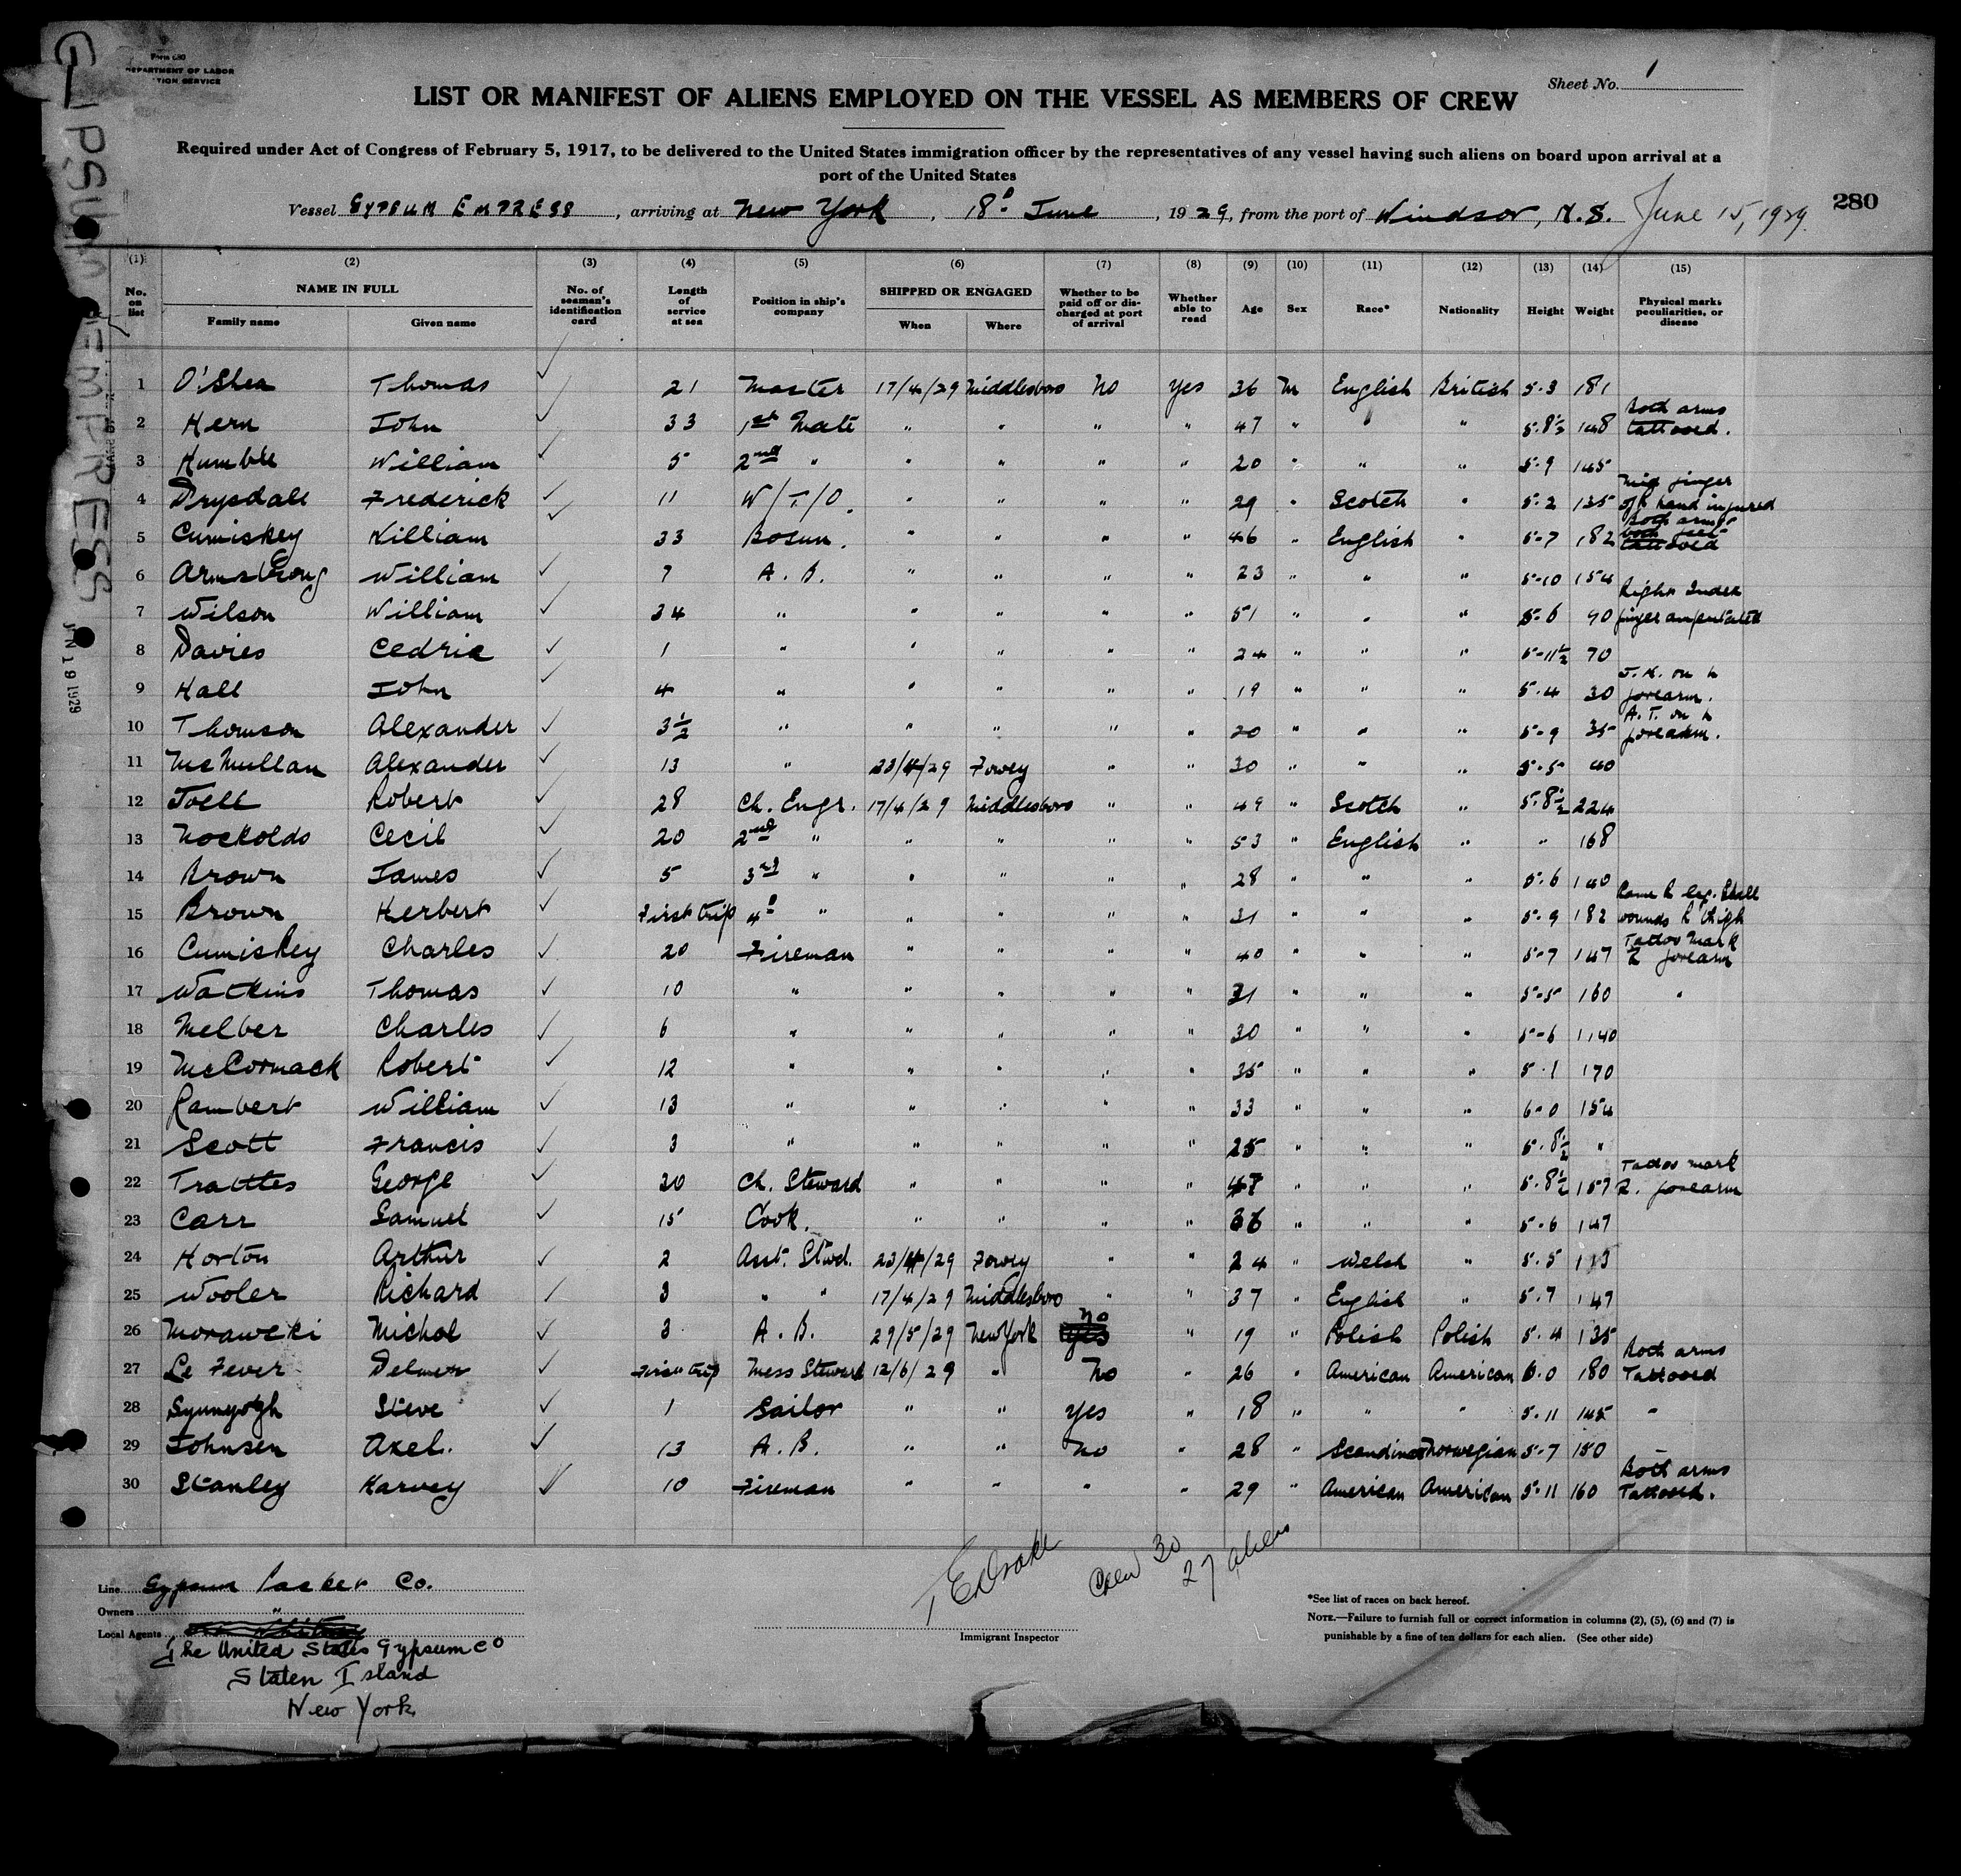 GYPSUM EMPRESS
Form 680
DEPARTMENT OF LABOR
TION SERVICE
Sheet No. 1
LIST OR MANIFEST OF ALIENS EMPLOYED ON THE VESSEL AS MEMBERS OF CREW
Required under Act of Congress of February 5, 1917, to be delivered to the United States immigration officer by the representatives of any vessel having such aliens on board upon arrival at a
port of the United States
Vessel GYPSUM EMPRESS, arriving at New York, 18th June, 1929, from the port of Windsor, N.S. June 15, 1929. 280
(1) (2) (3) (4) (5) (6) (7) (8) (9) (10) (11) (12) (13) (14) (15)
No. on list NAME IN FULL Family name Given name No. of seaman's identification card Length of service at sea Position in ship's company SHIPPED OR ENGAGED When Where Whether to be paid off or discharged at port of arrival Whether able to read Age Sex Race* Nationality Height Weight Physical marks peculiarities, or disease
1 O'Shea Thomas ✓ 21 Master 17/4/29 Middlesboro No Yes 36 M English British 5-3 181
2 Hern John ✓ 33 1st Mate " " " " 47 " " " 5.8½ 148 Both arms tattooed.
3 Humble William ✓ 5 2nd " " " " " 20 " " " 5-9 145
4 Drysdale Frederick ✓ 11 W/T/O. " " " " 29 " Scotch " 5-2 135 Mid finger of R hand injured
5 Cumiskey William ✓ 33 Bosun. " " " " 46 " English " 5-7 182 Both arms both feet tattooed
6 Armstrong William ✓ 7 A.B. " " " " 23 " " " 5-10 154
7 Wilson William ✓ 34 " " " " " 51 " " " 5-6 90 Right Index finger amputated
8 Davies Cedric ✓ 1 " " " " " 24 " " " 5-11½ 70
9 Hall John ✓ 4 " " " " " 19 " " " 5.4 30 J.H. on forearm.
10 Thomson Alexander ✓ 3½ " " " " " 20 " " " 5-9 35 A.T. on forearm.
11 McMullan Alexander ✓ 13 " 23/4/29 Fowey " " 30 " " " 5-5 40
12 Joell Robert ✓ 28 Ch. Engr. 17/4/29 Middlesboro " " 49 " Scotch " 5.8½ 224
13 Nockolds Cecil ✓ 20 2nd " " " " " 53 " English " " 168
14 Brown James ✓ 5 3rd " " " " " 28 " " " 5.6 140
15 Brown Herbert ✓ First trip 4th " " " " " 31 " " " 5-9 182 Lame R leg. Shell wounds R thigh
16 Cumiskey Charles ✓ 20 Fireman " " " " 40 " " " 5-7 147 Tattoo Mark R forearm
17 Watkins Thomas ✓ 10 " " " " " 31 " " " 5-5 160 "
18 Melber Charles ✓ 6 " " " " " 30 " " " 5-6 1140
19 McCormack Robert ✓ 12 " " " " " 35 " " " 5.1 170
20 Rambert William ✓ 13 " " " " " 33 " " " 6-0 154
21 Scott Francis ✓ 3 " " " " " 25 " " " 5.8½ "
22 Trattles George ✓ 30 Ch. Steward " " " " 47 " " " 5.8½ 157 Tattoo mark R. forearm
23 Carr Samuel ✓ 15 Cook. " " " " 36 " " " 5-6 147
24 Horton Arthur ✓ 2 Asst. Stwd. 23/4/29 Fowey " " 24 " Welsh " 5.5 113
25 Wooler Richard ✓ 3 " " 17/4/29 Middlesboro " " 37 " English " 5.7 147
26 Morawski Michol ✓ 3 A.B. 29/5/29 New York Yes No " 19 " Polish Polish 5.4 135
27 Le Fever Delmer ✓ First trip Mess Steward 12/6/29 " No " 26 " American American 6.0 180 Both arms Tattooed
28 Steve ✓ 1 Sailor " " Yes " 18 " " " 5.11 145 "
29 Johnsen Axel. ✓ 13 A.B. " " No " 28 " Norwegian 5-7 150
30 Stanley Harvey ✓ 10 Fireman " " " " 29 " American American 5.11 160 Both arms Tattooed.
JUN 19 1929
Crew 30
27 aliens
Line Gypsum Packet Co.
Owners "
Local Agents
The United States Gypsum Co
Staten Island
New York
Immigrant Inspector
*See list of races on back hereof.
NOTE.—Failure to furnish full or correct information in columns (2), (5), (6) and (7) is
punishable by a fine of ten dollars for each alien. (See other side)